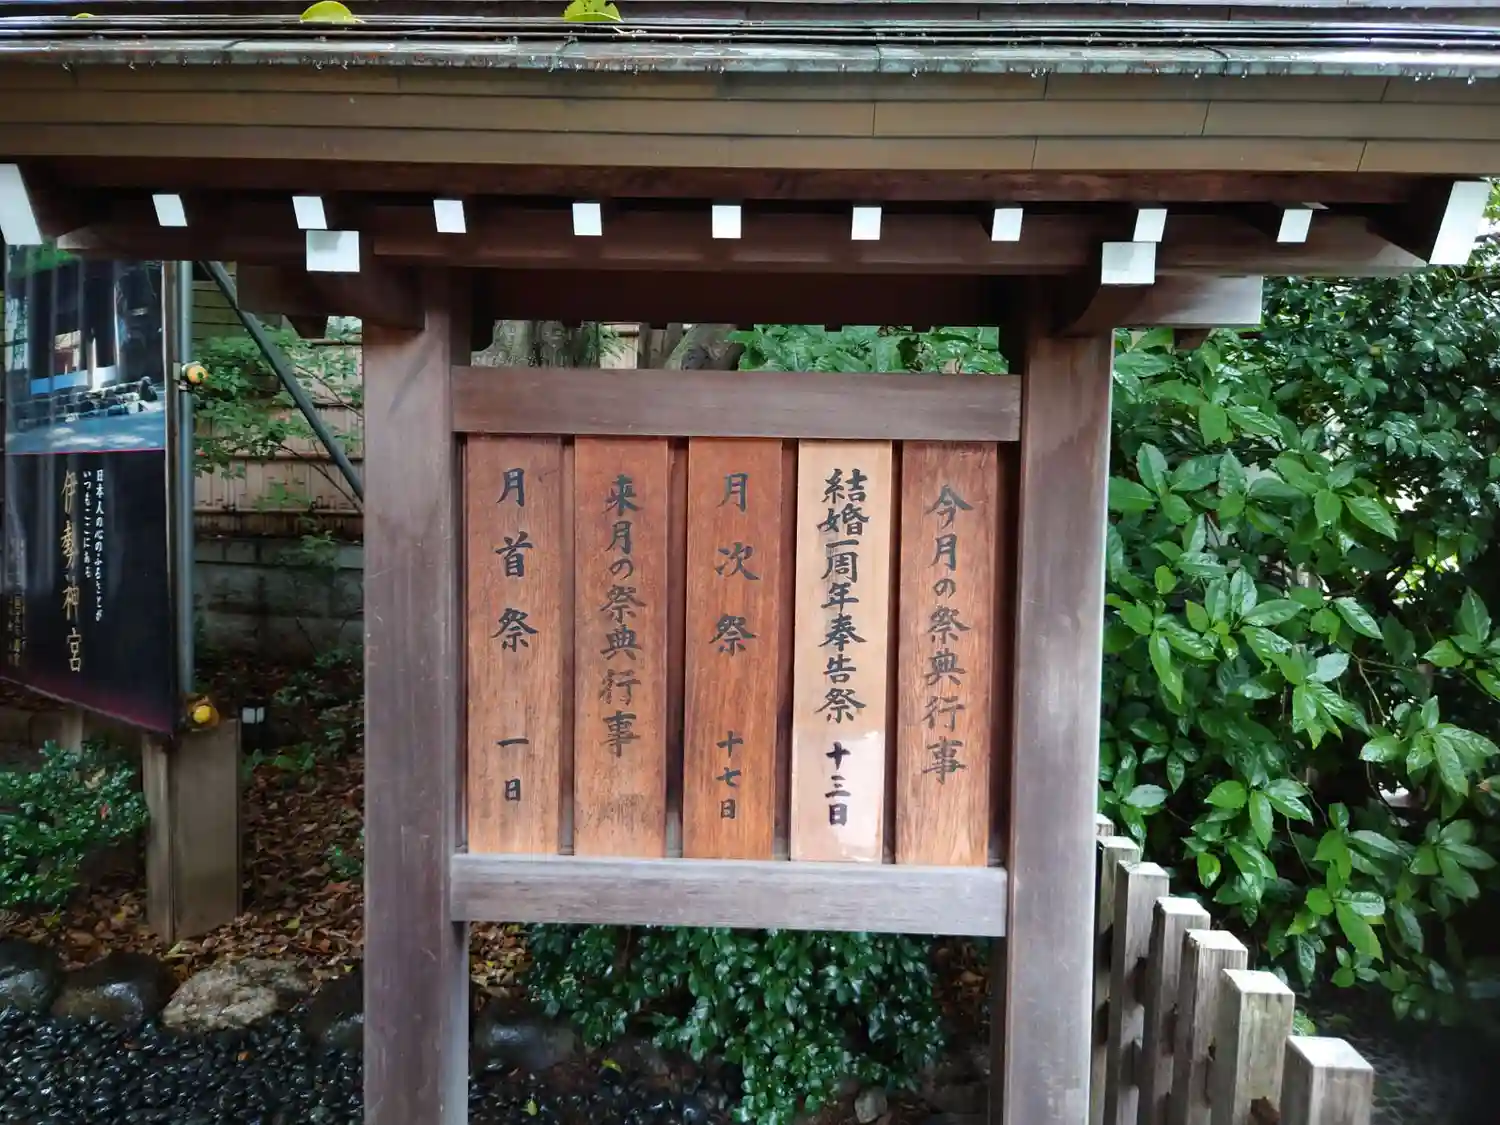 今月の祭典行事
結婚一周年奉告祭 十三日
月次祭 十七日
来月の祭典行事
月首祭 一日
日本人の心のふるさとが
いつもここにある
伊勢神宮